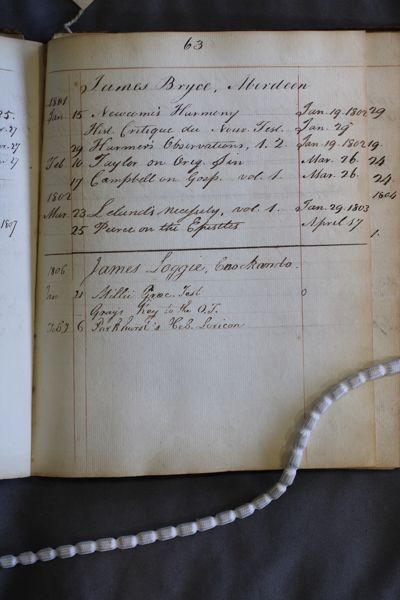 25.
1807
63
James Bryce, Aberdeen
1801
Jan. 15 Newcome's Harmony Jan. 19. 1802 29
Hist. Critique du Nouv. Test. Jan. 29
29 Harmer's Observations, 1. 2 Jan. 19. 1802 19.
Feb. 10 Taylor on Orig. Sin Mar. 26. 24
17 Campbell on Gosp. vol. 1. Mar. 26. 24
1802 1804
Mar. 23 Leland's necessity, vol. 1. Jan. 29. 1803
25 Peirce on the Epistles April 17 1.
1806 James Loggie,
Jan 21 Millii Græc. Test 0
Gray's Key to the O.T.
Feby 6 Parkhurst's Heb. Lexicon